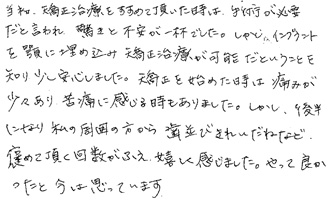 当初、矯正治療をすすめて頂いた時は、手術が必要
だと言われ、驚きと不安が一杯でした。しかし、インプラント
を顎に埋め込み矯正治療が可能だということを
知り少し安心しました。矯正を始めた時は痛みが
少々あり、苦痛に感じる時もありました。しかし、後半
になり私の周囲の方から歯並びきれいだねなど、
褒めて頂く回数がふえ、嬉しく感じました。やって良か
ったと今は思っています。